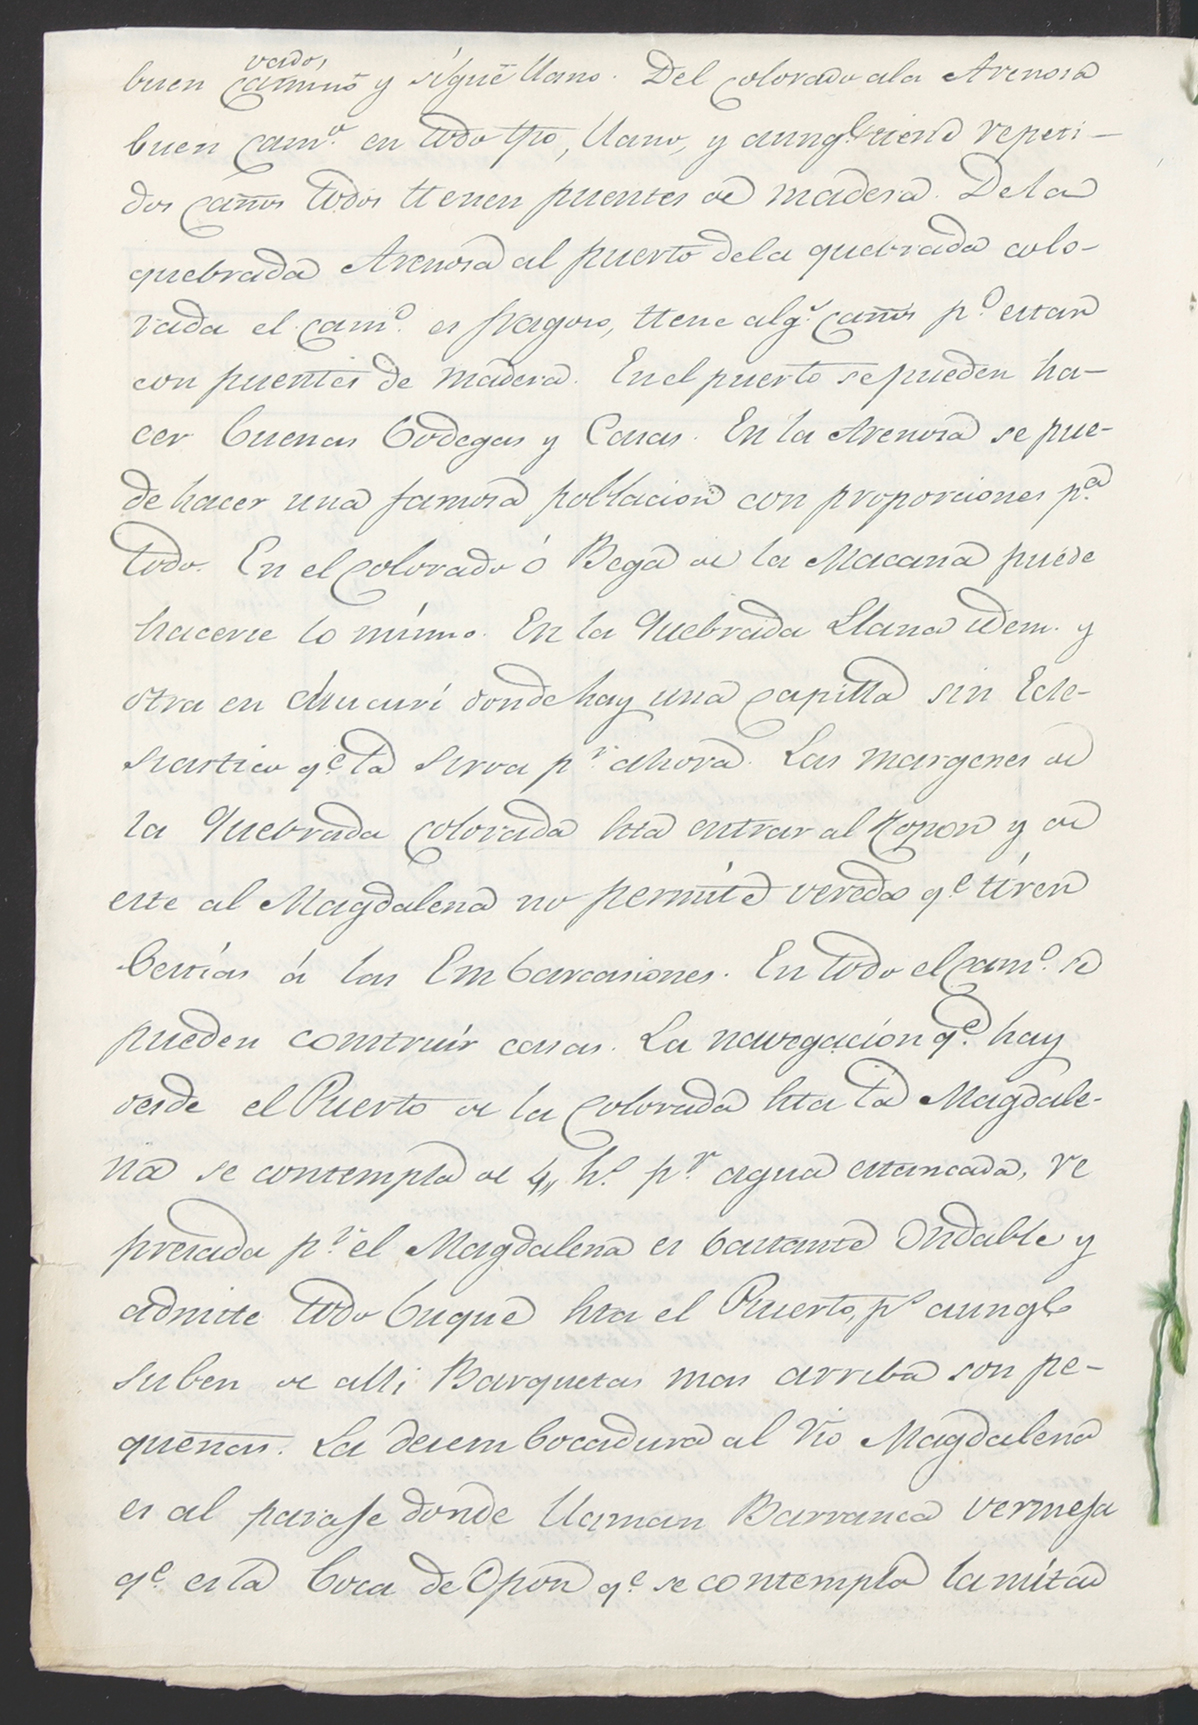 vado,
buen camino y sigue llano. Del colorado ala Arenosa
buen cam.º en todo tpo, llano, y aunq.e tiene repeti-
dos caños todos tienen puentes de madera. De la
quebrada Arenosa al puerto dela quebrada colo-
rada el cam.º es fragoso, tiene alg.s caños p.º estan
con puentes de madera. En el puerto se pueden ha-
cer buenas bodegas y Casas. En la Arenosa se pue-
de hacer una famosa poblacion con proporciones p.a
todo. En el colorado ó Bega de la Macana puede
hacerse lo mismo. En la Quebrada Llana idem. y
otra en chucurí donde hay una capilla sin Ecle-
siastico q.e la sirva p.r ahora. Las margenes de
la Quebrada colorada hta entrar al Hopon y de
este al Magdalena no permite vereda q.e tiren
bestias á las Embarcasiones. En todo el cam.º se
pueden construir casas. La navegacion q.e hay
desde el Puerto de la Colorada hta la Magdale-
na se contempla de 4,, h.s p.r agua estancada, re
presada p.r el Magdalena es bastante Ondable y
admite todo buque hta el Puerto, p.s aunq.e
suben de alli Barquetas mas arriba son pe-
quenas. La desembocadura al Rio Magdalena
es al paraje donde llaman Barranca vermeja
q.e es la boca de Opon q.e se contempla la mitad